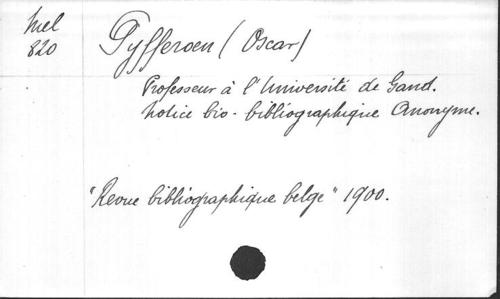 Mel
820
Pyfferoen (Oscar)
Professeur à l'Université de Gand.
Notice bio-bibliographique Anonyme.
"Revue bibliographique belge" 1900.